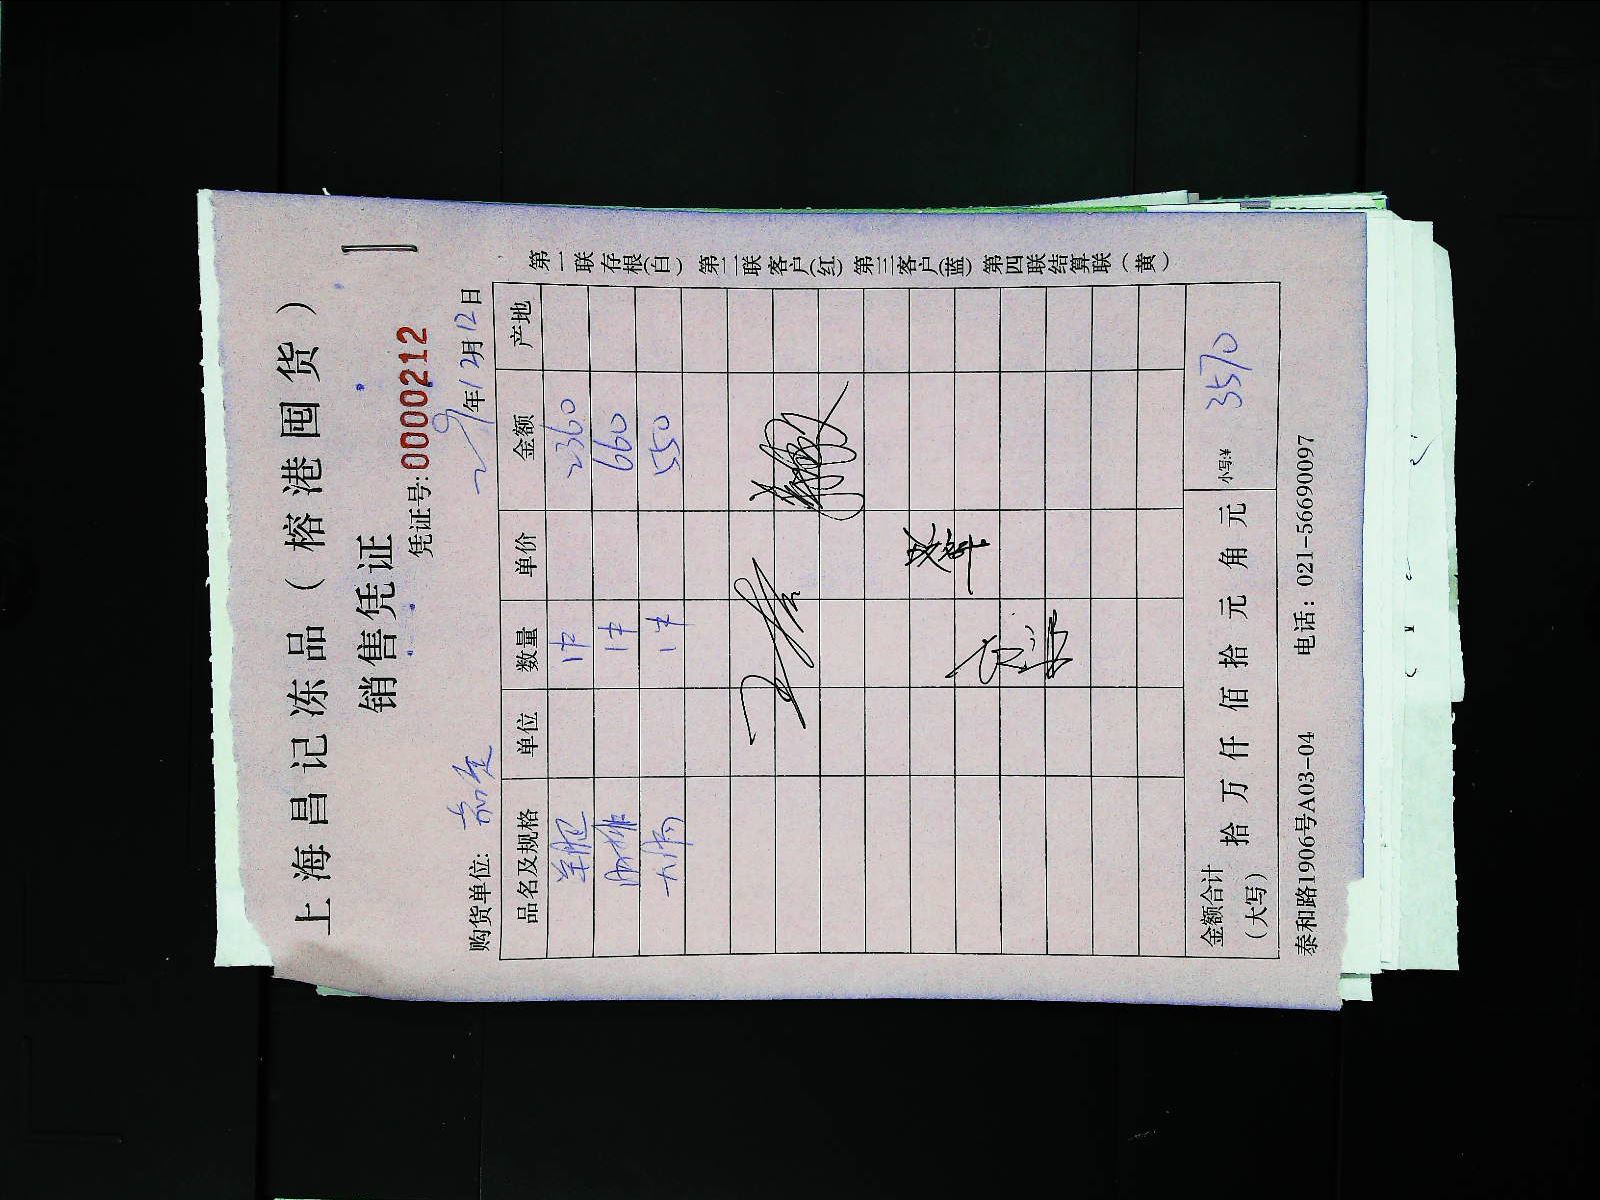 上海昌记冻品（榕港囤货）
销售凭证
凭证号:0000212
购货单位: 年12月12日
品名及规格 单位 数量 单价 金额 产地
1件 2360
1件 660
大肠 1件 550
金额合计（大写） 拾 万 仟 佰 拾 元 角 元 小写:¥ 3570
泰和路1906号A03-04 电话: 021-56690097
第一联存根(白) 第二联客户(红) 第三客户(蓝) 第四联结算联(黄)